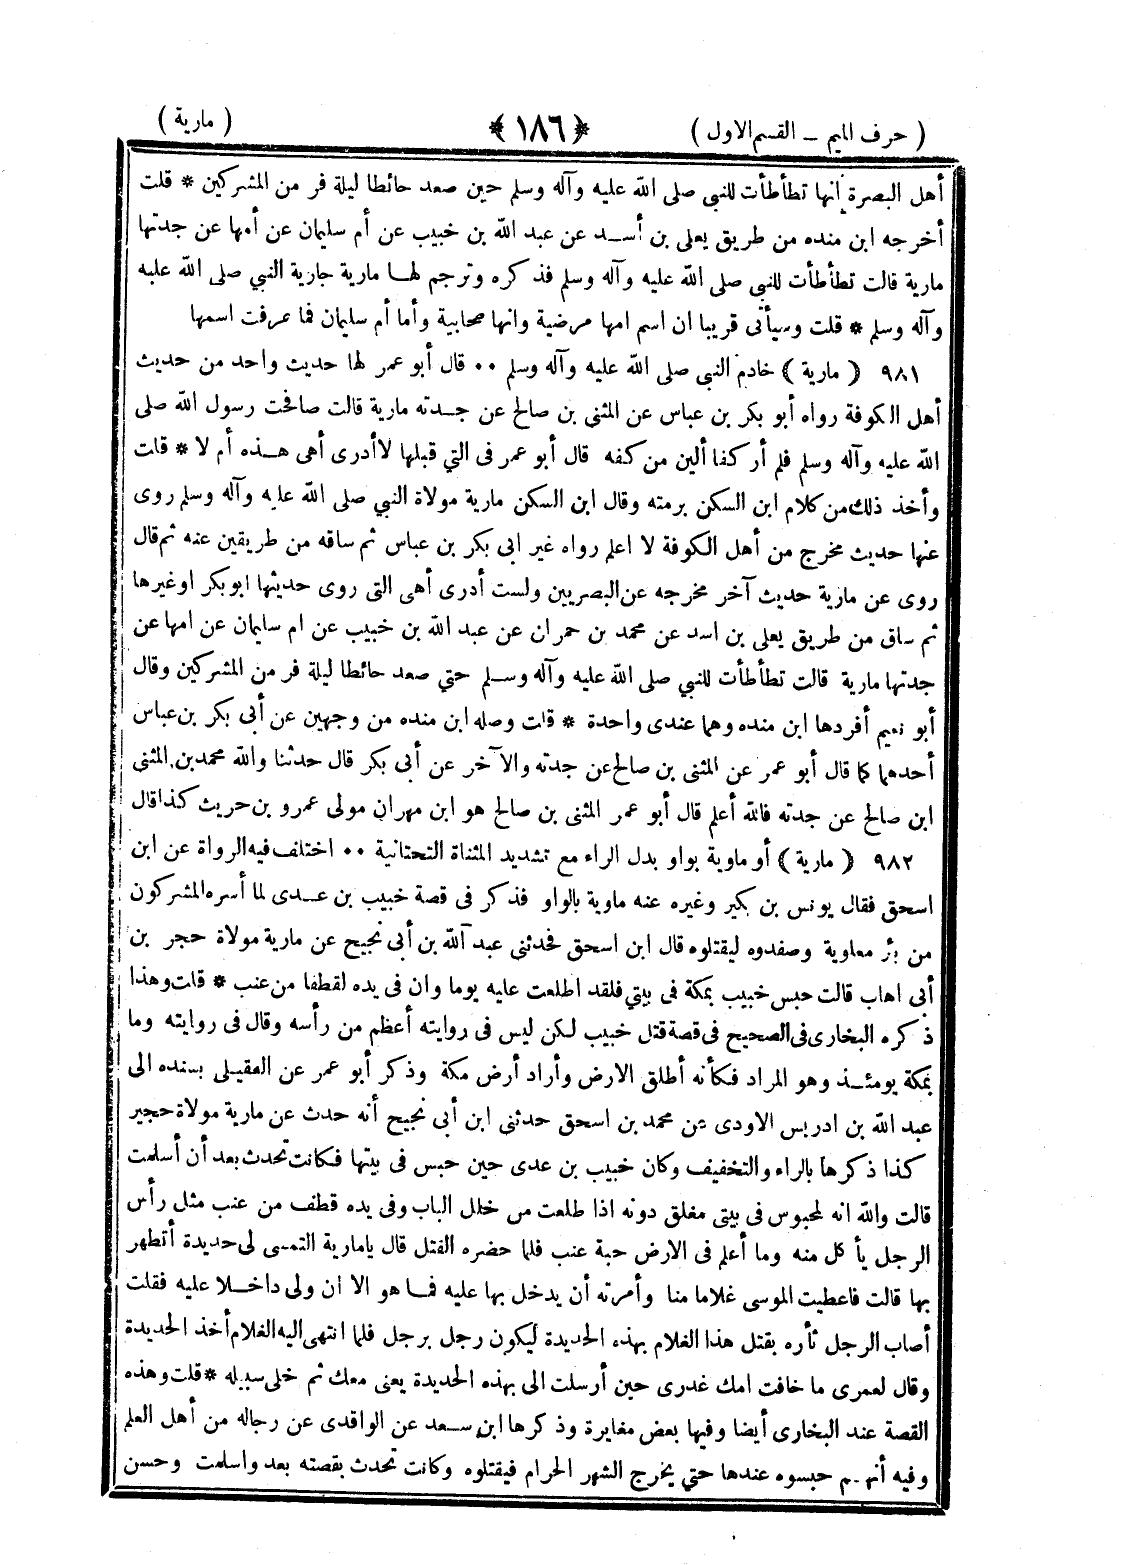 ( حرف الميم – القسم الاول ) ﴿ ١٨٦ ﴾ ( مارية )
أهل البصرة أنها تطأطأت للنبي صلى الله عليه وآله وسلم حين صعد حائطا ليلة فر من المشركين * قلت
أخرجه ابن منده من طريق يعلى بن أسد عن عبد الله بن خبيب عن أم سليمان عن أمها عن جدتها
مارية قالت تطأطأت للنبي صلى الله عليه وآله وسلم فذكره وترجم لها مارية جارية النبي صلى الله عليه
وآله وسلم * قلت وسيأتى قريبا ان اسم امها مرضية وانها صحابية وأما أم سليمان فما عرفت اسمها
٩٨١ ( مارية ) خادم النبي صلى الله عليه وآله وسلم ٠٠ قال أبو عمر لها حديث واحد من حديث
أهل الكوفة رواه أبو بكر بن عباس عن المثنى بن صالح عن جدته مارية قالت صافحت رسول الله صلى
الله عليه وآله وسلم فلم أر كفا ألين من كفه قال أبو عمر فى التي قبلها لا أدرى أهى هذه أم لا * قلت
وأخذ ذلك من كلام ابن السكن برمته وقال ابن السكن مارية مولاة النبي صلى الله عليه وآله وسلم روى
عنها حديث مخرج من أهل الكوفة لا اعلم رواه غير ابى بكر بن عباس ثم ساقه من طريقين عنه ثم قال
روى عن مارية حديث آخر مخرجه عن البصريين ولست أدرى أهى التى روى حديثها ابو بكر او غيرها
ثم ساق من طريق يعلى بن اسد عن محمد بن حمران عن عبد الله بن خبيب عن ام سليمان عن امها عن
جدتها مارية قالت تطأطأت للنبي صلى الله عليه وآله وسلم حتي صعد حائطا ليلة فر من المشركين وقال
أبو نعيم أفردها ابن منده وهما عندى واحدة * قلت وصله ابن منده من وجهين عن أبى بكر بن عباس
أحدهما كما قال أبو عمر عن المثنى بن صالح عن جدته والآخر عن أبى بكر قال حدثنا والله محمد بن المثنى
ابن صالح عن جدته فالله أعلم قال أبو عمر المثنى بن صالح هو ابن مهران مولى عمرو بن حريث كذا قال
٩٨٢ ( مارية ) أو ماوية بواو بدل الراء مع تشديد المثناة التحتانية ٠٠ اختلف فيه الرواة عن ابن
اسحق فقال يونس بن بكير وغيره عنه ماوية بالواو فذكر فى قصة خبيب بن عدى لما أسره المشركون
من بئر معاوية وصفدوه ليقتلوه قال ابن اسحق فحدثنى عبد الله بن أبى نجيح عن مارية مولاة حجر بن
أبى اهاب قالت حبس خبيب بمكة فى بيتي فلقد اطلعت عليه يوما وان فى يده لقطفا من عنب * قلت وهذا
ذكره البخارى فى الصحيح فى قصة قتل خبيب لكن ليس فى روايته أعظم من رأسه وقال فى روايته وما
بمكة يومئذ وهو المراد فكأنه أطلق الارض وأراد أرض مكة وذكر أبو عمر عن العقيلى بسنده الى
عبد الله بن ادريس الاودى عن محمد بن اسحق حدثنى ابن أبى نجيح أنه حدث عن مارية مولاة حجير
كذا ذكرها بالراء والتخفيف وكان خبيب بن عدى حين حبس فى بيتها فكانت تحدث بعد أن أسلمت
قالت والله انه لمحبوس فى بيتى مغلق دونه اذا طلعت من خلل الباب وفى يده قطف من عنب مثل رأس
الرجل يأكل منه وما أعلم فى الارض حبة عنب فلما حضره القتل قال يامارية التمسى لى حديدة أتطهر
بها قالت فاعطيت الموسى غلاما منا وأمرته أن يدخل بها عليه فما هو الا ان ولى داخلا عليه فقلت
أصاب الرجل ثأره بقتل هذا الغلام بهذه الحديدة ليكون رجل برجل فلما انتهى اليه الغلام أخذ الحديدة
وقال لعمرى ما خافت امك غدرى حين أرسلت الى بهذه الحديدة يعنى معك ثم خلى سبيله * قلت وهذه
القصة عند البخارى أيضا وفيها بعض مغايرة وذكرها ابن سعد عن الواقدى عن رجاله من أهل العلم
وفيه أنهم حبسوه عندها حتي يخرج الشهر الحرام فيقتلوه وكانت تحدث بقصته بعد واسلمت وحسن